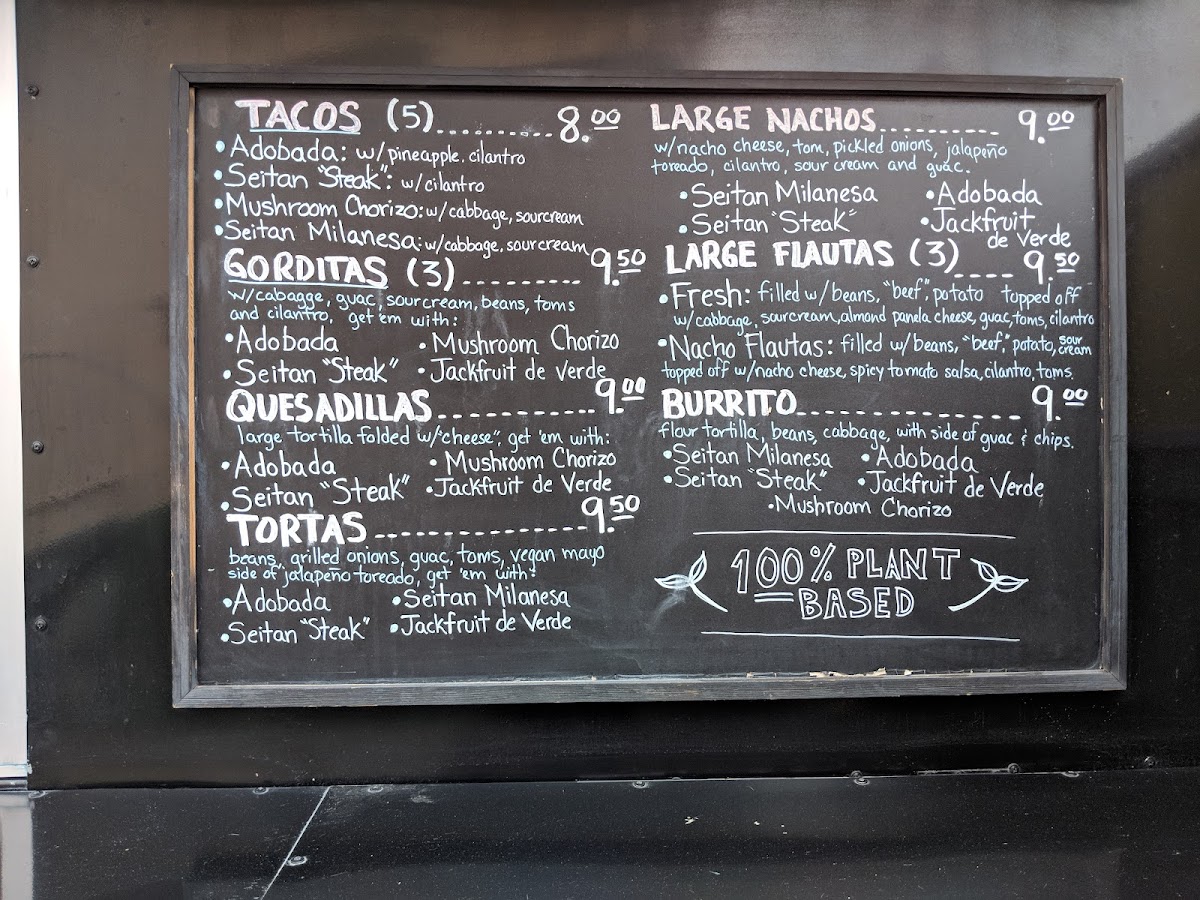 TACOS (5)..........8.00
• Adobada: w/pineapple. cilantro
• Seitan "Steak": w/cilantro
• Mushroom Chorizo: w/cabbage, sourcream
• Seitan Milanesa: w/cabbage, sourcream
GORDITAS (3)..........9.50
w/cabagge, guac, sourcream, beans, toms
and cilantro, get 'em with:
• Adobada • Mushroom Chorizo
• Seitan "Steak" • Jackfruit de Verde
QUESADILLAS..........9.00
large tortilla folded w/"cheese", get 'em with:
• Adobada • Mushroom Chorizo
• Seitan "Steak" • Jackfruit de Verde
TORTAS..........9.50
beans, grilled onions, guac, toms, vegan mayo
side of jalapeño toreado, get 'em with:
• Adobada • Seitan Milanesa
• Seitan "Steak" • Jackfruit de Verde
LARGE NACHOS..........9.00
w/nacho cheese, tom, pickled onions, jalapeño
toreado, cilantro, sour cream and guac.
• Seitan Milanesa • Adobada
• Seitan "Steak" • Jackfruit
de Verde
LARGE FLAUTAS (3)....9.50
• Fresh: filled w/beans, "beef", potato topped off
w/cabbage, sourcream, almond panela cheese, guac, toms, cilantro
• Nacho Flautas: filled w/beans, "beef", potato, sour cream
topped off w/nacho cheese, spicy tomato salsa, cilantro, toms.
BURRITO..........9.00
flour tortilla, beans, cabbage, with side of guac & chips.
• Seitan Milanesa • Adobada
• Seitan "Steak" • Jackfruit de Verde
• Mushroom Chorizo
100% PLANT
BASED